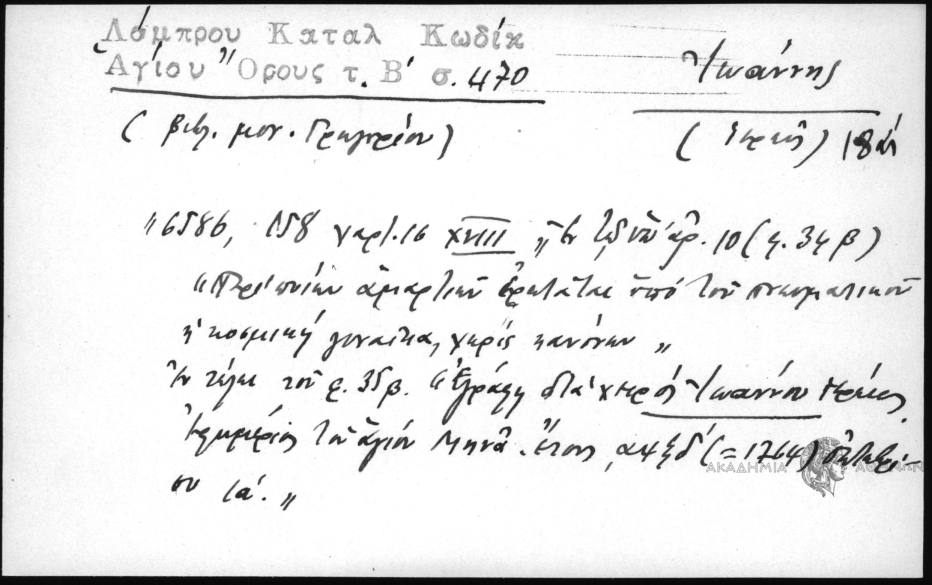 Λάμπρου Καταλ Κωδίκ
Ἁγίου Ὄρους τ. Β' σ. 470
Ἰωάννης
(βιβλ. μον. Γρηγορίου)
(ἱερεὺς) 18 αἰ
"6586, 158 χαρτ. 16 XVIII " Ἐν τῷ ὑπ' ἀρ. 10 (φ. 34 β)
" Περὶ ποίων ἁμαρτιῶν ἐρωτᾶται ὑπὸ τοῦ πνευματικοῦ
ἡ κοσμικὴ γυναῖκα, χωρὶς κανόνων "
Ἐν τέλει τοῦ φ. 35 β. "Ἐγράφη διὰ χειρὸς Ἰωάννου ἱερέως
ἐφημερίος τοῦ ἁγίου Μηνᾶ. ἔτους ͵αψξδ' (= 1764)
ου ια'. "
ΑΚΑΔΗΜΙΑ ΑΘΗΝΩΝ